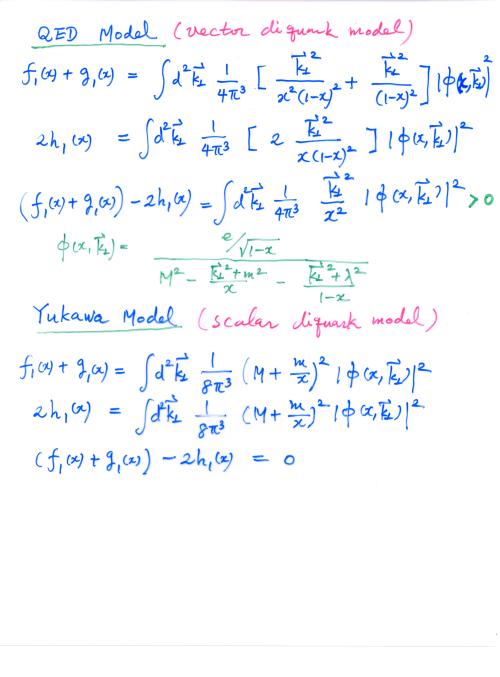 QED Model (vector diquark model)
f₁(x) + g₁(x) = ∫d²k⃗⊥ 1/4π³ [ k⃗⊥²/x²(1-x)² + k⃗⊥²/(1-x)² ] |ϕ(x,k⃗⊥)|²
2h₁(x) = ∫d²k⃗⊥ 1/4π³ [ 2 k⃗⊥²/x(1-x)² ] |ϕ(x,k⃗⊥)|²
(f₁(x) + g₁(x)) - 2h₁(x) = ∫d²k⃗⊥ 1/4π³ k⃗⊥²/x² |ϕ(x,k⃗⊥)|² > 0
ϕ(x,k⃗⊥) = e/√1-x / M² - k⃗⊥²+m²/x - k⃗⊥²+λ²/1-x
Yukawa Model (scalar diquark model)
f₁(x) + g₁(x) = ∫d²k⃗⊥ 1/8π³ (M + m/x)² |ϕ(x,k⃗⊥)|²
2h₁(x) = ∫d²k⃗⊥ 1/8π³ (M + m/x)² |ϕ(x,k⃗⊥)|²
(f₁(x) + g₁(x)) - 2h₁(x) = 0